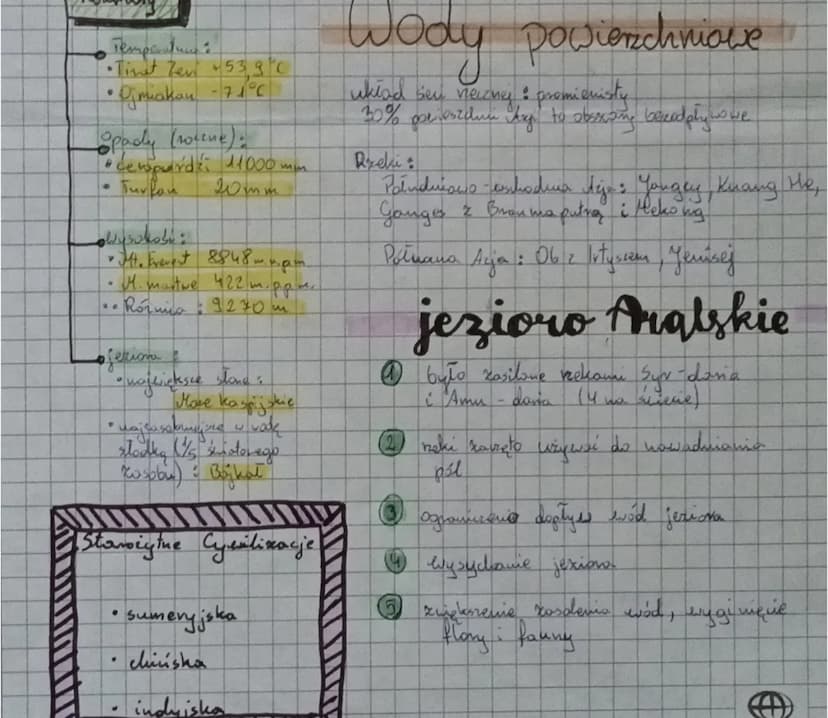 Temperatura:
• Tirat Zevi +53,9°C
• Ojmiakon -71°C
Opady (roczne):
• Czerapundżi 11000 mm
• Turfan 20 mm
Wysokość:
• Mt. Everest 8848 m n.p.m.
• M. martwe 422 m.p.p.m.
•• Różnica : 9270 m
jeziora :
• największe słone :
Morze kaspijskie
• najzasobniejsze w wodę
słodką (1/5 światowego
zasobu) : Bajkał
Starożytne Cywilizacje
• sumeryjska
• chińska
• indyjska
Wody powierzchniowe
układ sieci rzecznej : promienisty
30% powierzchni Azji to obszary bezodpływowe
Rzeki :
Południowo-wschodnia Azja: Jangcy, Kuang He,
Ganges z Bramaputrą i Mekong
Północna Azja : Ob z Irtyszem, Jenisej
jezioro Aralskie
1 było zasilane rzekami Syr-daria
i Amu-daria (4 na świecie)
2 rzeki zaczęto używać do nawadniania
pól
3 ograniczenie dopływ wód jeziora
4 wysychanie jeziora
5 zwiększenie zasolenia wód, wyginięcie
flory i fauny